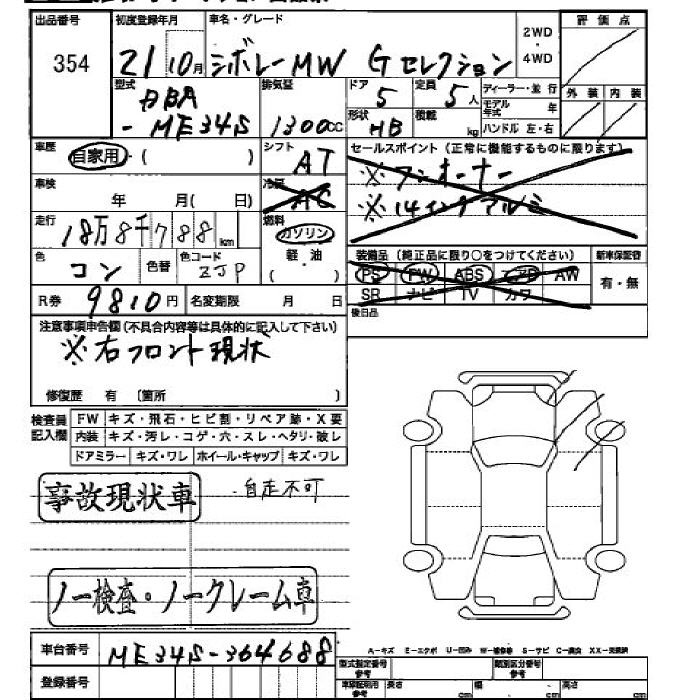 出品番号 初度登録年月 車名・グレード 評価点
354 21 10月 シボレーMW Gセレクション 2WD ・ 4WD
型式 排気量 ドア 定員 ディーラー・並行
DBA 5 5人 モデル年式 年 外装 内装
-ME34S 1300cc 形状 HB 積載 kg ハンドル 左・右
車歴 自家用・( ) シフト AT セールスポイント(正常に機能するものに限ります)
※ワンオーナー
車検 年 月( 日) 冷房 AC ※14インチアルミ
走行 18万8千788km 燃料 ガソリン
色 コン 色替 色コード ZJP 軽・油 ( )
装備品(純正品に限り○をつけてください) 新車保証書
PS PW ABS エアB AW 有・無
SR ナビ TV カワ
R券 9810円 名変期限 月 日 後日品
注意事項申告欄(不具合内容等は具体的に記入して下さい)
※右フロント現状
修復歴 有 〔箇所 〕
検査員記入欄 FW キズ・飛石・ヒビ割・リペア跡・X要
内装 キズ・汚レ・コゲ・穴・スレ・ヘタリ・破レ
ドアミラー キズ・ワレ ホイール・キャップ キズ・ワレ
事故現状車 ・自走不可
ノー検査・ノークレーム車
車台番号 ME34S-364688
A-キズ E-エクボ U-凹み W-補修跡 S-サビ C-腐食 XX-交換済
登録番号 型式指定番号 参考 類別区分番号 参考
車庫証明用 参考 長さ cm 幅 cm 高さ cm